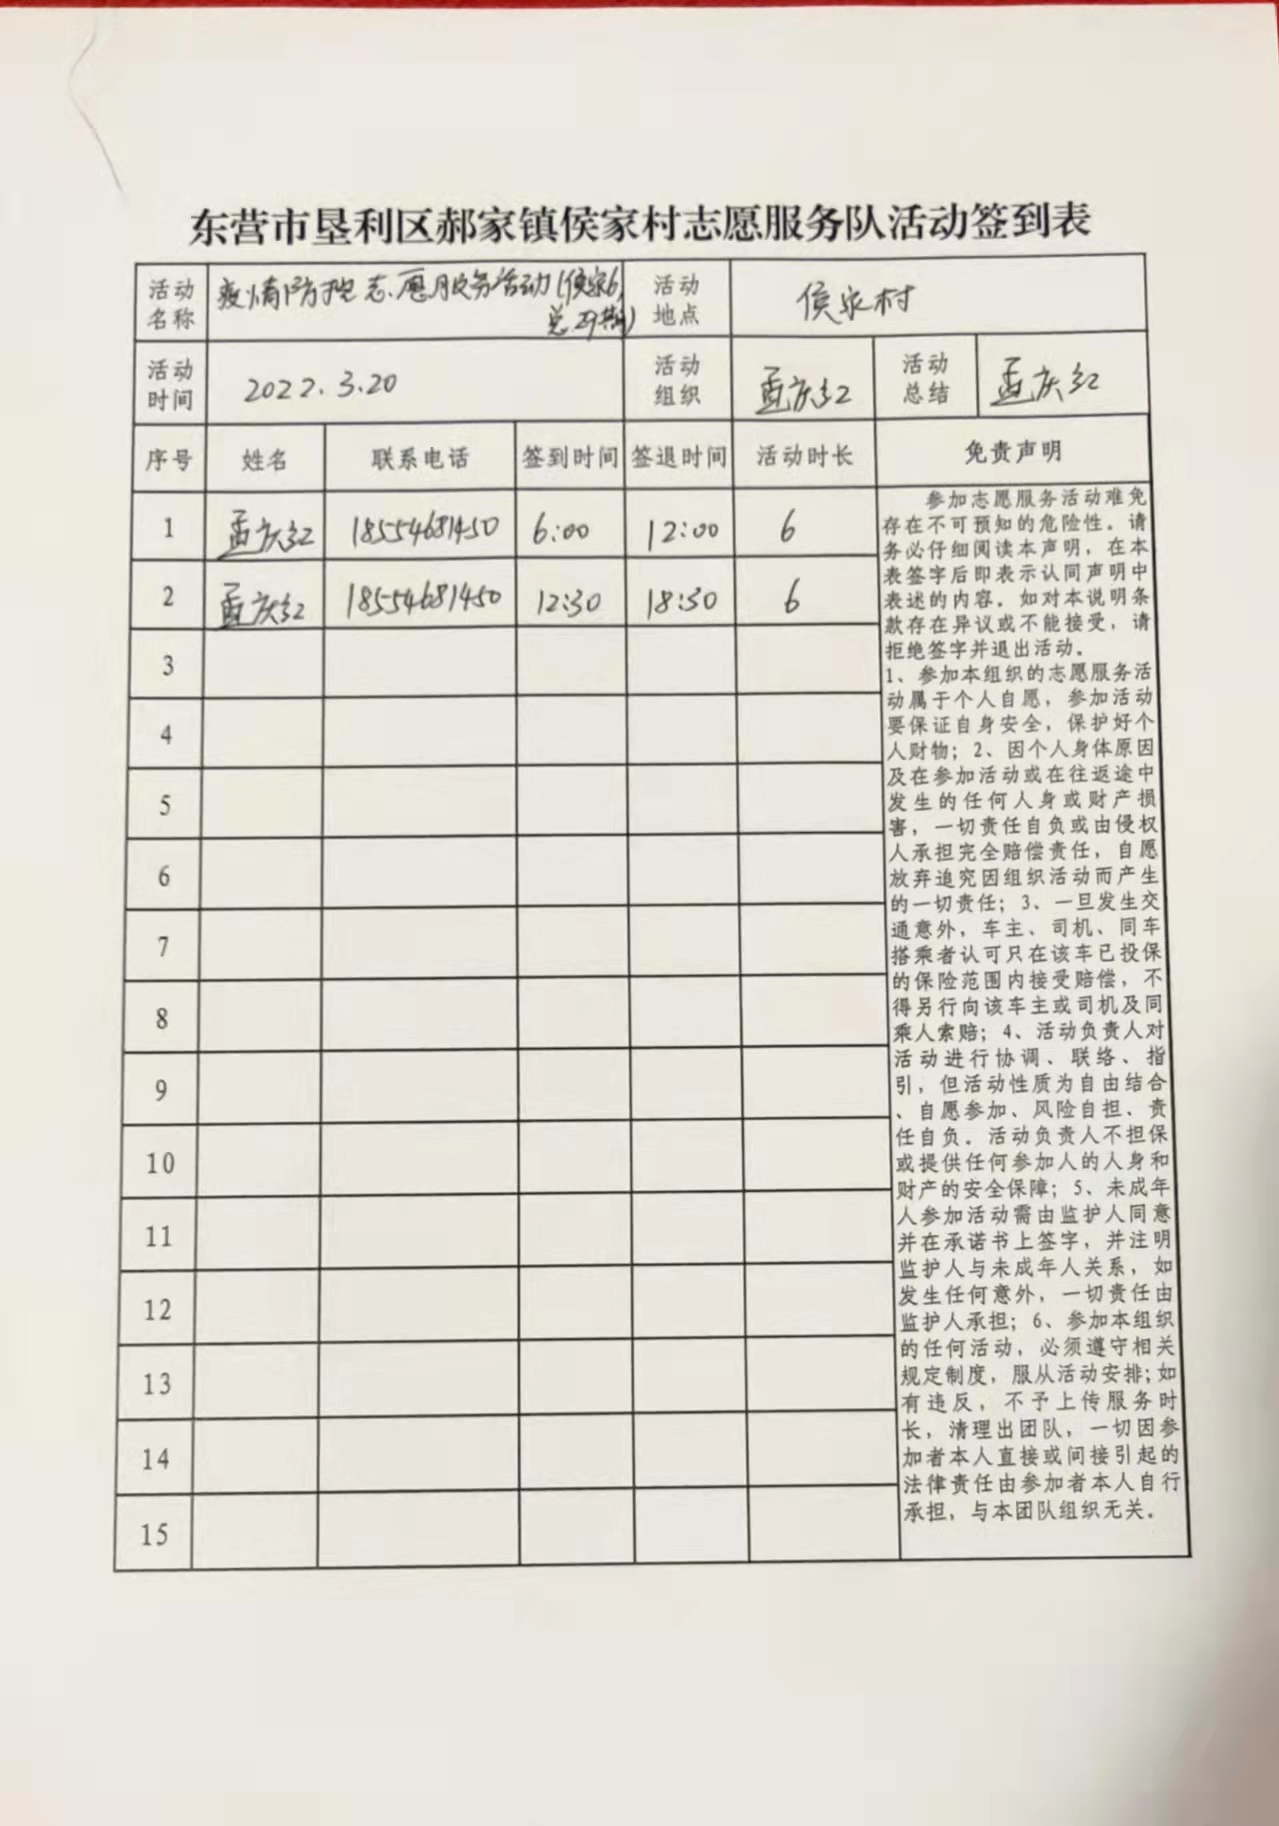 东营市垦利区郝家镇侯家村志愿服务队活动签到表
活动名称 疫情防控志愿服务活动(侯家6,总29期) 活动地点 侯家村
活动时间 2022.3.20 活动组织 孟庆红 活动总结 孟庆红
序号 姓名 联系电话 签到时间 签退时间 活动时长 免责声明
1 孟庆红 18554681450 6:00 12:00 6
2 孟庆红 18554681450 12:30 18:30 6
3
4
5
6
7
8
9
10
11
12
13
14
15
参加志愿服务活动难免
存在不可预知的危险性。请
务必仔细阅读本声明，在本
表签字后即表示认同声明中
表述的内容。如对本说明条
款存在异议或不能接受，请
拒绝签字并退出活动。
1、参加本组织的志愿服务活
动属于个人自愿，参加活动
要保证自身安全，保护好个
人财物；2、因个人身体原因
及在参加活动或在往返途中
发生的任何人身或财产损
害，一切责任自负或由侵权
人承担完全赔偿责任，自愿
放弃追究因组织活动而产生
的一切责任；3、一旦发生交
通意外，车主、司机、同车
搭乘者认可只在该车已投保
的保险范围内接受赔偿，不
得另行向该车主或司机及同
乘人索赔；4、活动负责人对
活动进行协调、联络、指
引，但活动性质为自由结合
、自愿参加、风险自担、责
任自负。活动负责人不担保
或提供任何参加人的人身和
财产的安全保障；5、未成年
人参加活动需由监护人同意
并在承诺书上签字，并注明
监护人与未成年人关系，如
发生任何意外，一切责任由
监护人承担；6、参加本组织
的任何活动，必须遵守相关
规定制度，服从活动安排；如
有违反，不予上传服务时
长，清理出团队，一切因参
加者本人直接或间接引起的
法律责任由参加者本人自行
承担，与本团队组织无关。